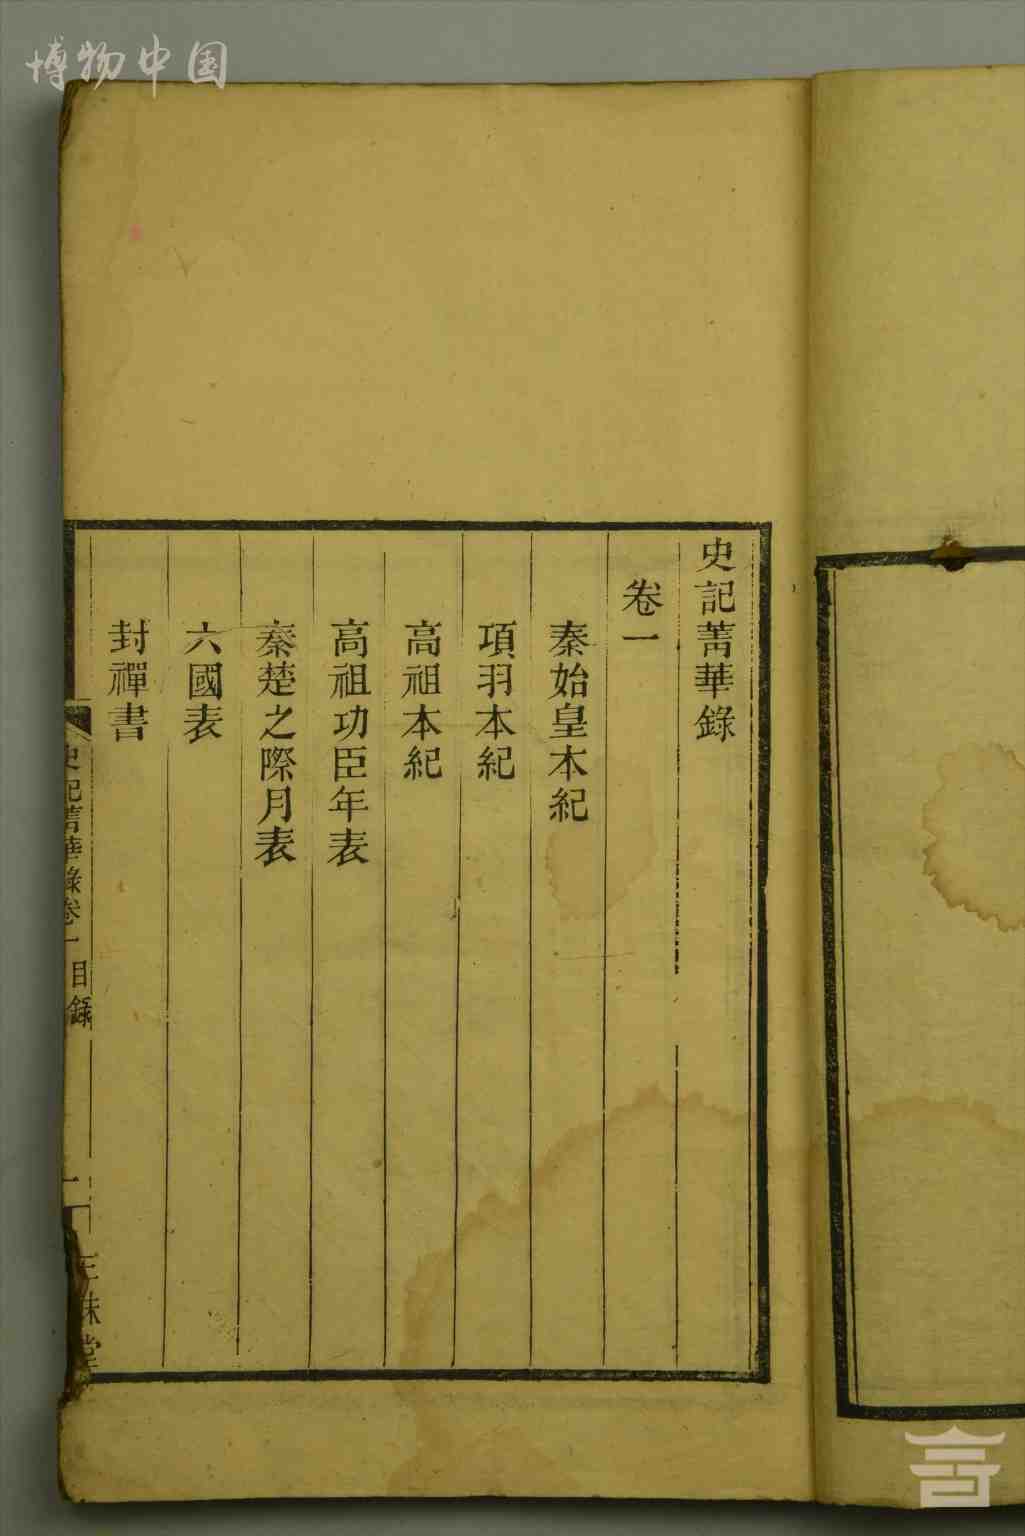 博物中国
史記菁華錄
卷一
秦始皇本紀
項羽本紀
高祖本紀
高祖功臣年表
秦楚之際月表
六國表
封禪書
史記菁華錄卷一
目錄
一
三味堂